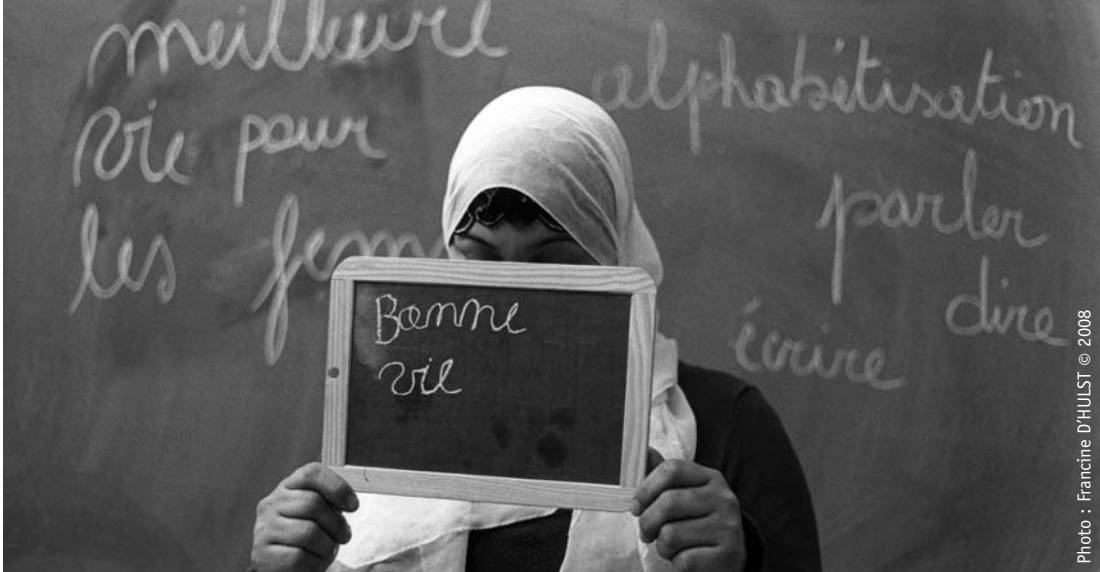 meilleure
vie pour
les fem
alphabétisation
parler
dire
écrire
Bonne
vie
Photo : Francine D'HULST © 2008